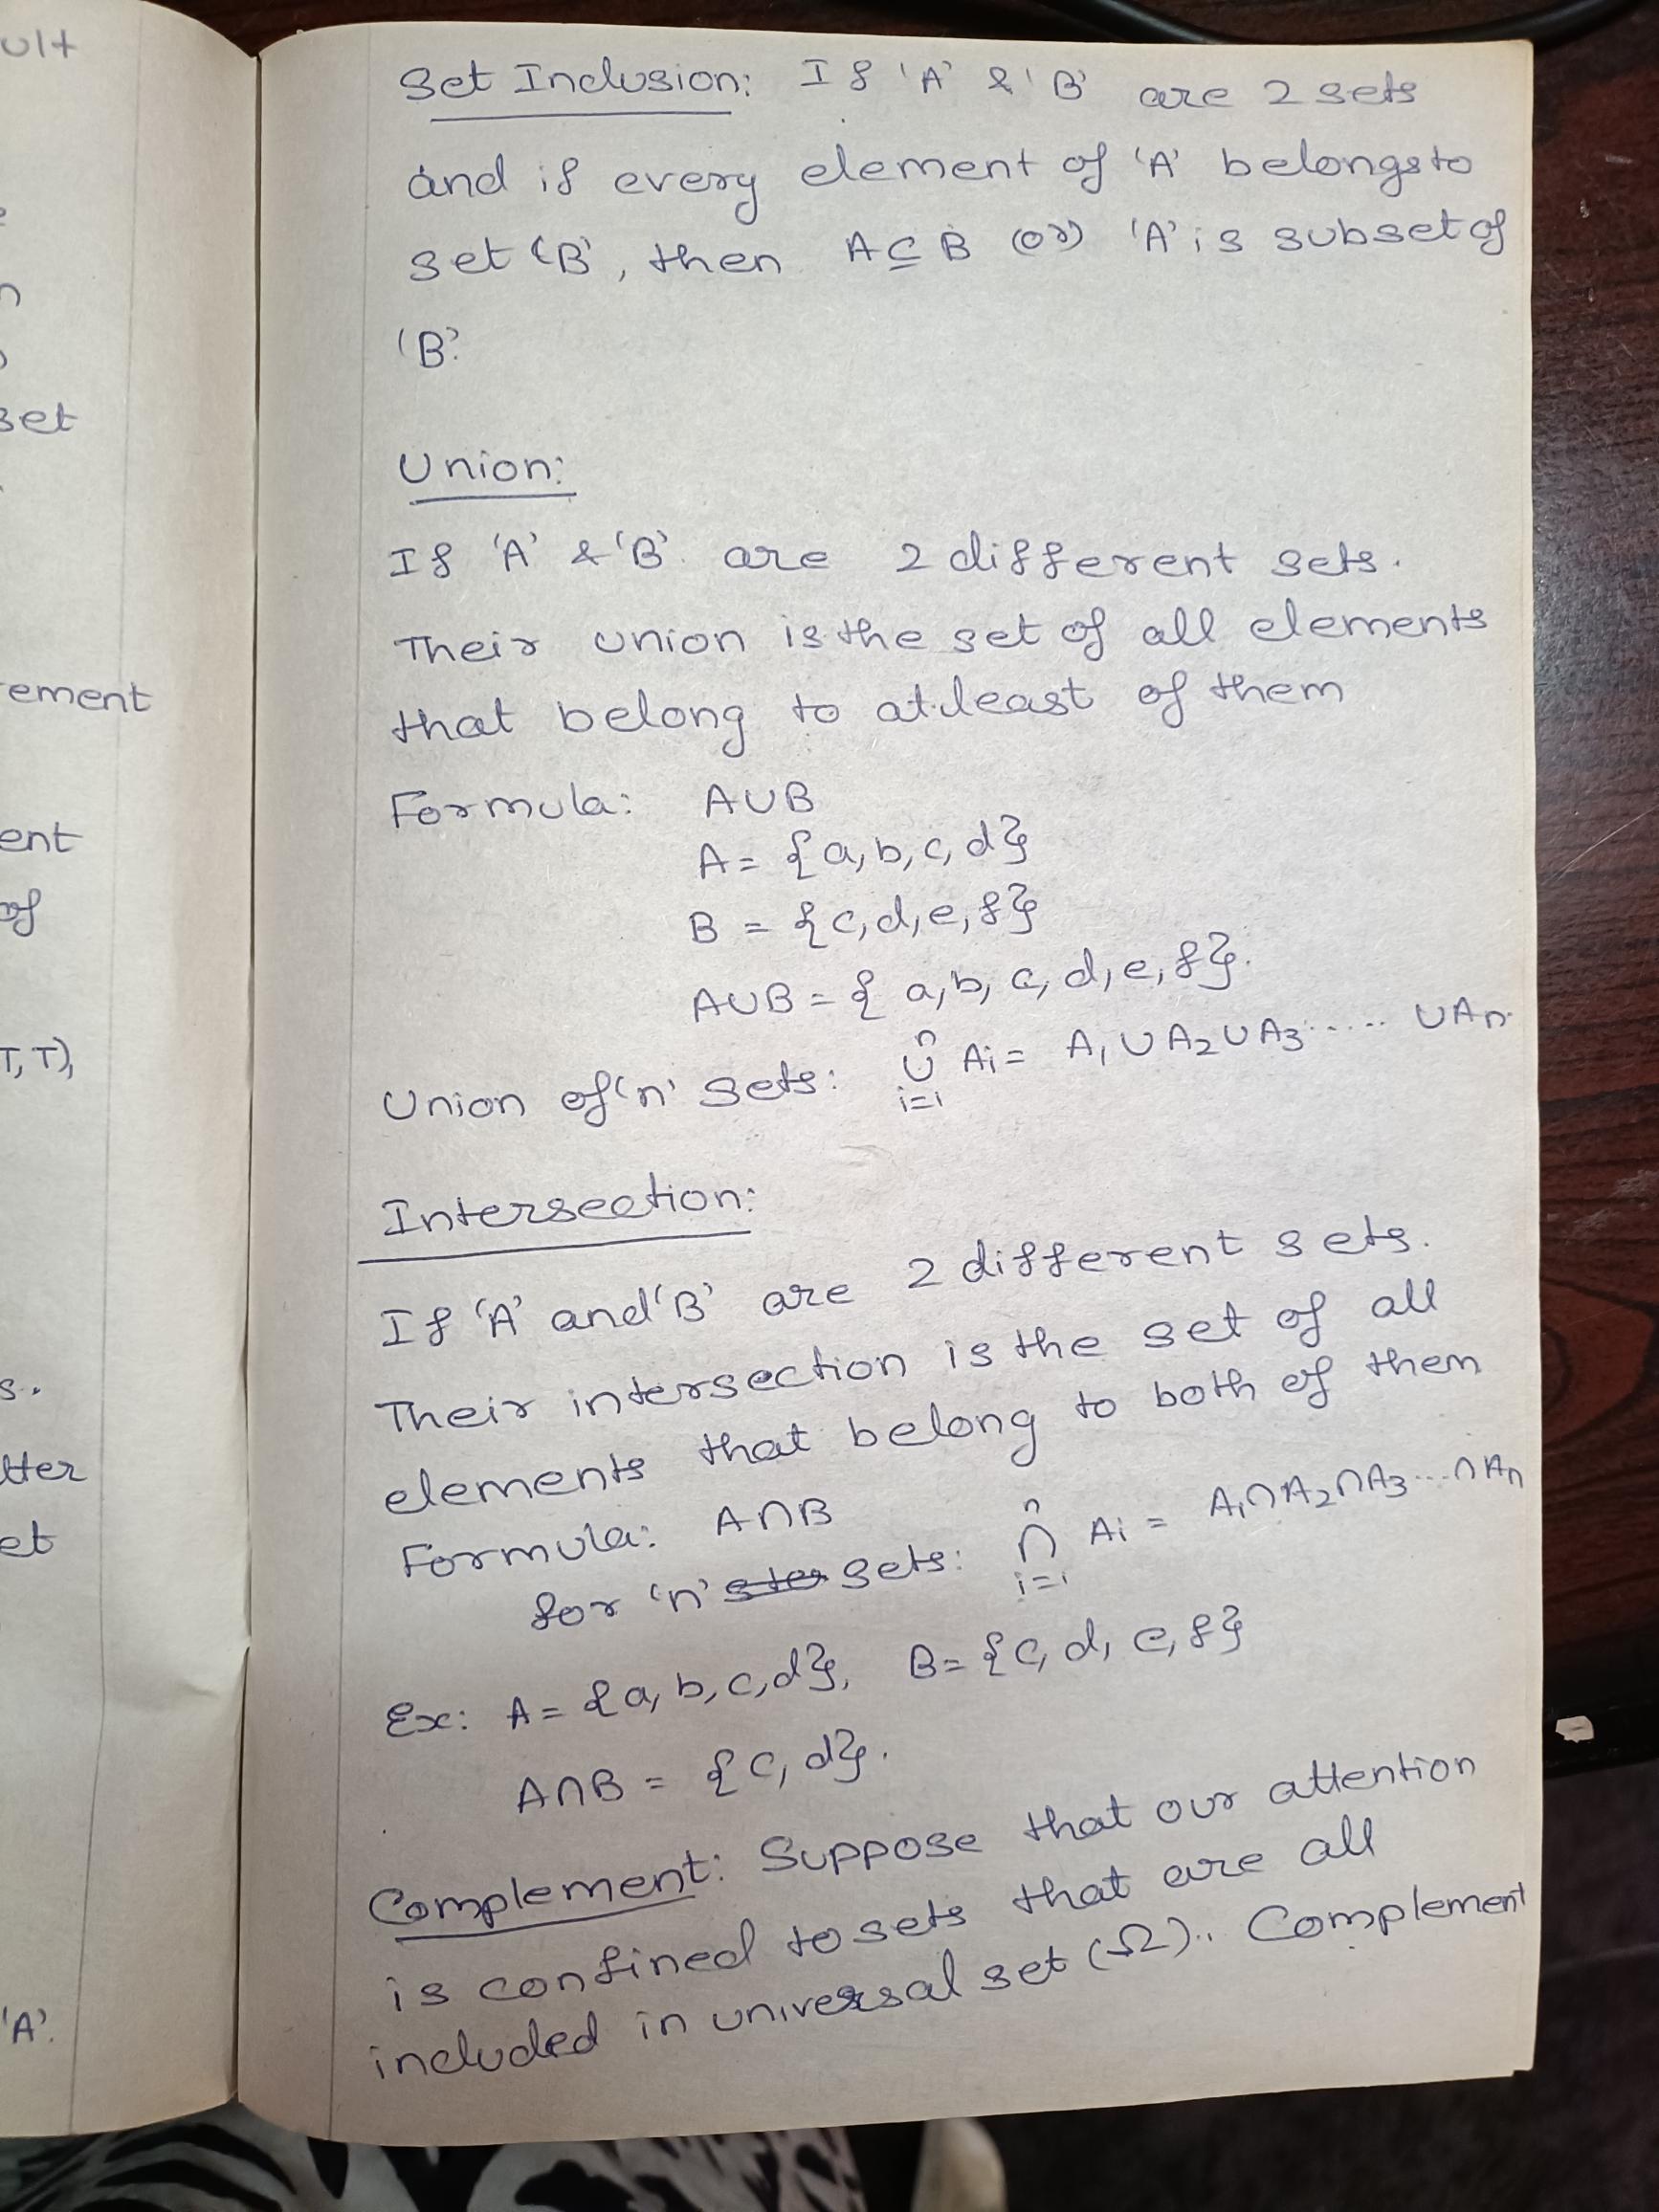 ult
set
ement
ent
of
T, T),
s.
tter
et
'A'.
Set Inclusion: If 'A' & 'B' are 2 sets
and if every element of 'A' belongs to
set 'B', then A ⊆ B (or) 'A' is subset of
'B'.
Union:
If 'A' & 'B' are 2 different sets.
Their union is the set of all elements
that belong to atleast of them
Formula: A∪B
A = {a, b, c, d}
B = {c, d, e, f}
A∪B = { a, b, c, d, e, f}.
Union of 'n' sets: n ∪ i=1 Ai = A1 ∪ A2 ∪ A3 ..... ∪ An.
Intersection:
If 'A' and 'B' are 2 different sets.
Their intersection is the set of all
elements that belong to both of them
Formula: A∩B
for 'n' sets: n ∩ i=1 Ai = A1∩A2∩A3...∩An
Ex: A = {a, b, c, d}, B = {c, d, e, f}
A∩B = {c, d}.
Complement: Suppose that our attention
is confined to sets that are all
included in universal set (Ω).. Complement